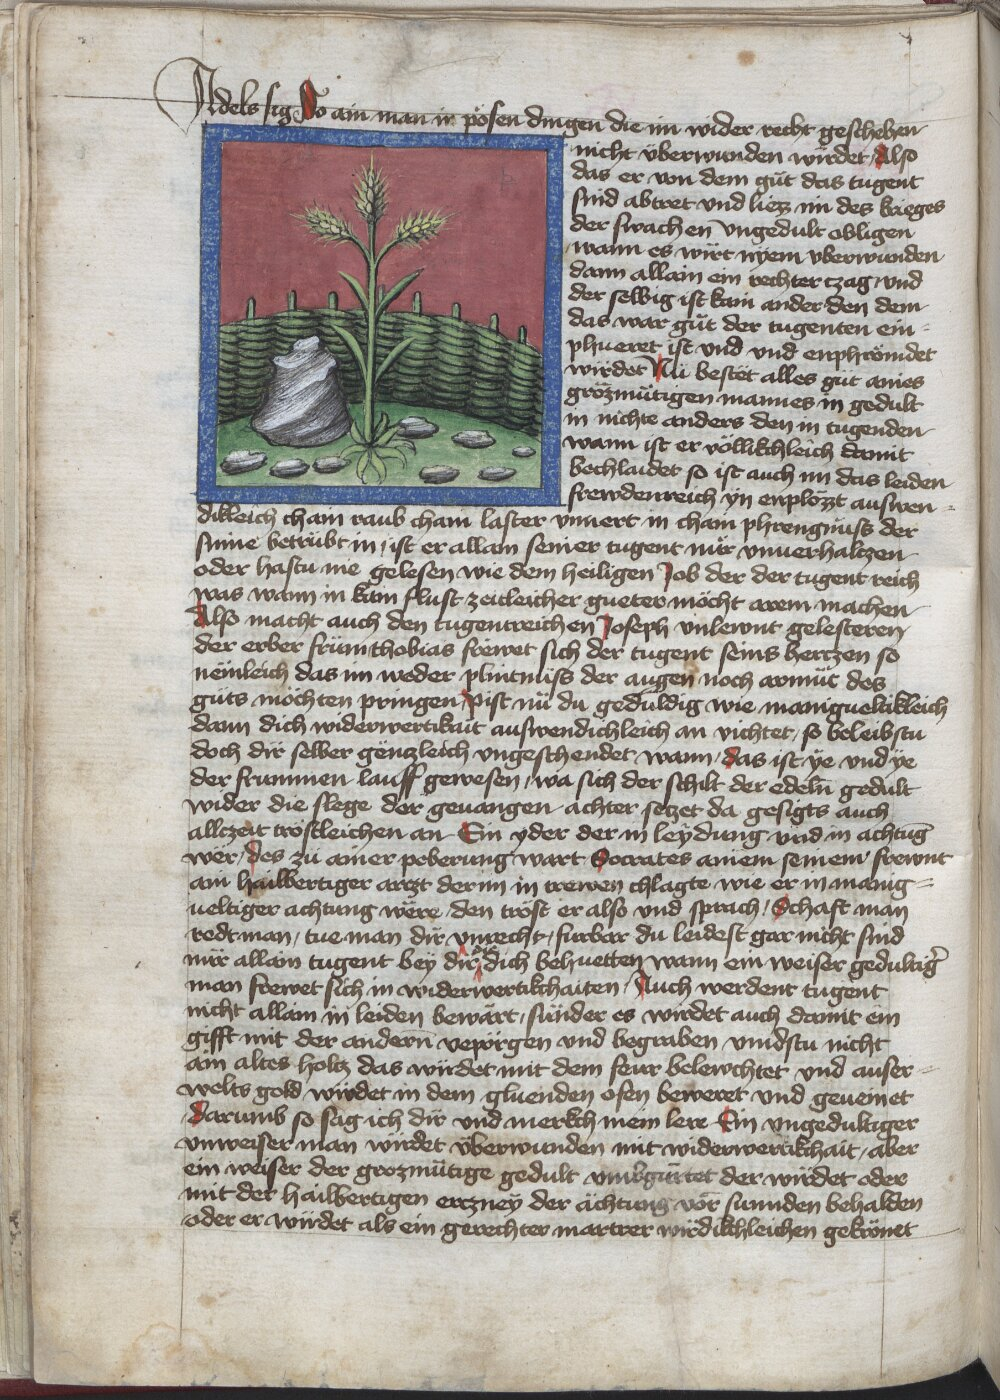 Adels sig So ain man in pösen dingen die im wider recht geschehen
nicht überwunden wirdet Also
das er von dem güt das tugent
sind abtret und liezz im des krieges
der swachen ungedult obligen
wann es wirt nyem vberwunden
dann allain ein rechter czag und
der selbig ist kain ander den dem
das war güt der tugenten em=
phueret ist und und enphrömdet
wirdet Nü bestet alles güt aines
grözmütigen mannes in gedult
in nichte anders den in tugenden
wann ist er völlikchleich damit
bechlaidet so ist auch im das leiden
frewdenreich yn enplözzt auswen=
dikleich chain raub chain laster vnuert in chain phrengnuss der
sinne betrübt in, ist er allain seiner tugent nür vnuerhalczen
oder hastu nie gelesen wie dem heiligen Job der der tugent reich
was wann in kain flust zeitleicher gueter möcht arem machen
Also macht auch den tugentreichen Joseph vnlewnt gelesteren
der erber früm thobias frewet sich der tugent seins herczen so
nëmleich das im weder plintnüss der augen noch armüt des
güts möchten pringen, Pist nü du geduldig wie maniguekikleich
dann dich widerwertikait auswendichleich an vichtet, so beleibstu
doch dir selber gënczleich ungeschendet wann, das ist ye und ye
der frummen lauff gewesen, wa sich der schilt der edeln gedult
wider die slege der geuangen ächter seczet da gesigts auch
allczeit tröstleichen an Ein yder der in leydung und in achtug
wër, des zü ainer peberung wart Socrates ainem seinem frewnt
ain hailbertiger arczt der im in trewen chlagte wie er in manig=
ueltiger achtung wëre, den tröst er also und sprach, Schaft man
redt man, tue man dir vnrecht, furbar du leidest gar nicht sind
nür allain tugent bey dir, dich behuetten wann ein weiser gedultigr
man frewet sich in widerwertikchaiten, Auch werdent tugent
nicht allain in leiden bewärt, sünder es wirdet auch damit ein
gifft mit der andern verpörgen und begraben vindstu nicht
ain altes holtz das wirdet mit dem feur belewchtet und ausser=
welts gold wirdet in dem gluenden ofen beweret und geueinet
darumb so sag ich dir und merkch mein lere Ein vngedultiger
vnweiser man wirdet überwunden mit widerwertikchait, aber
ein weiser der grozmütige gedult vmbgürtet der wirdet oder
mit der hailbertigen erczney der ächtung vor sunnden behalden
oder er wirdet als ein gerechter martrer wirdikchleichen gekrönet